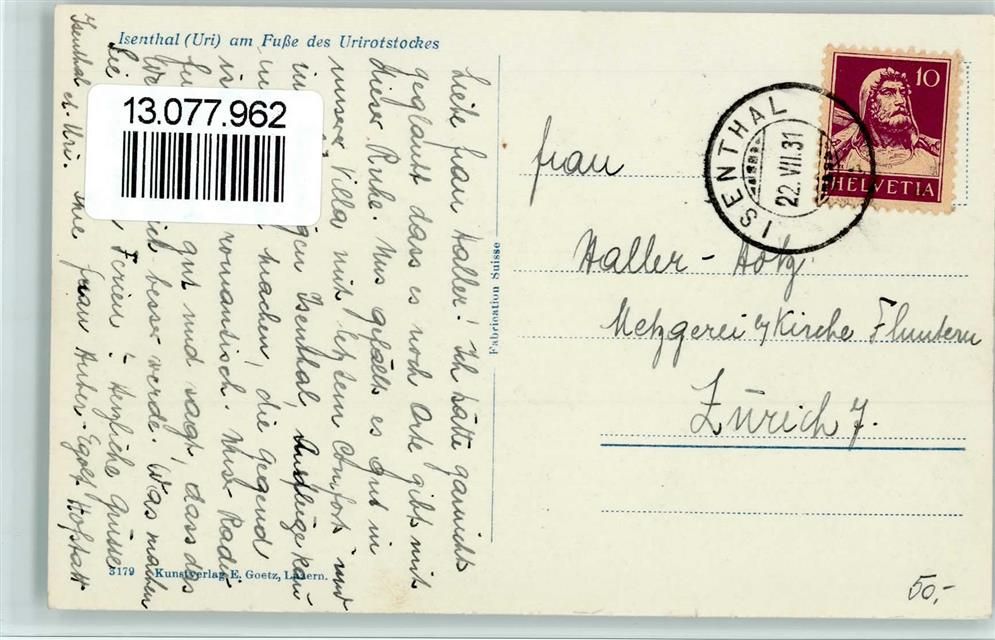 Isenthal (Uri) am Fuße des Urirotstockes
13.077.962
Liebe Frau Haller! Ich hätte garnicht
geglaubt dass es noch Orte gibt mit
dieser Ruhe. Uns gefällt es gut in
unserer Villa mit letztem Comfort und
Isenthal, Ausflüge kann
machen, die Gegend
romantisch. Unser Radi
gut und sagt, dass das
besser werde. Was machen
Sie Ferien? Herzliche Grüsse
Ihre Frau Huber-Egolf. Hofstatt
Isenthal ct. Uri.
3179 Kunstverlag E. Goetz, Luzern.
Fabrication Suisse
ISENTHAL
22.VII.31
10
HELVETIA
Frau
Haller-Hotz
Metzgerei z/Kirche Fluntern
Zürich 7.
50,-